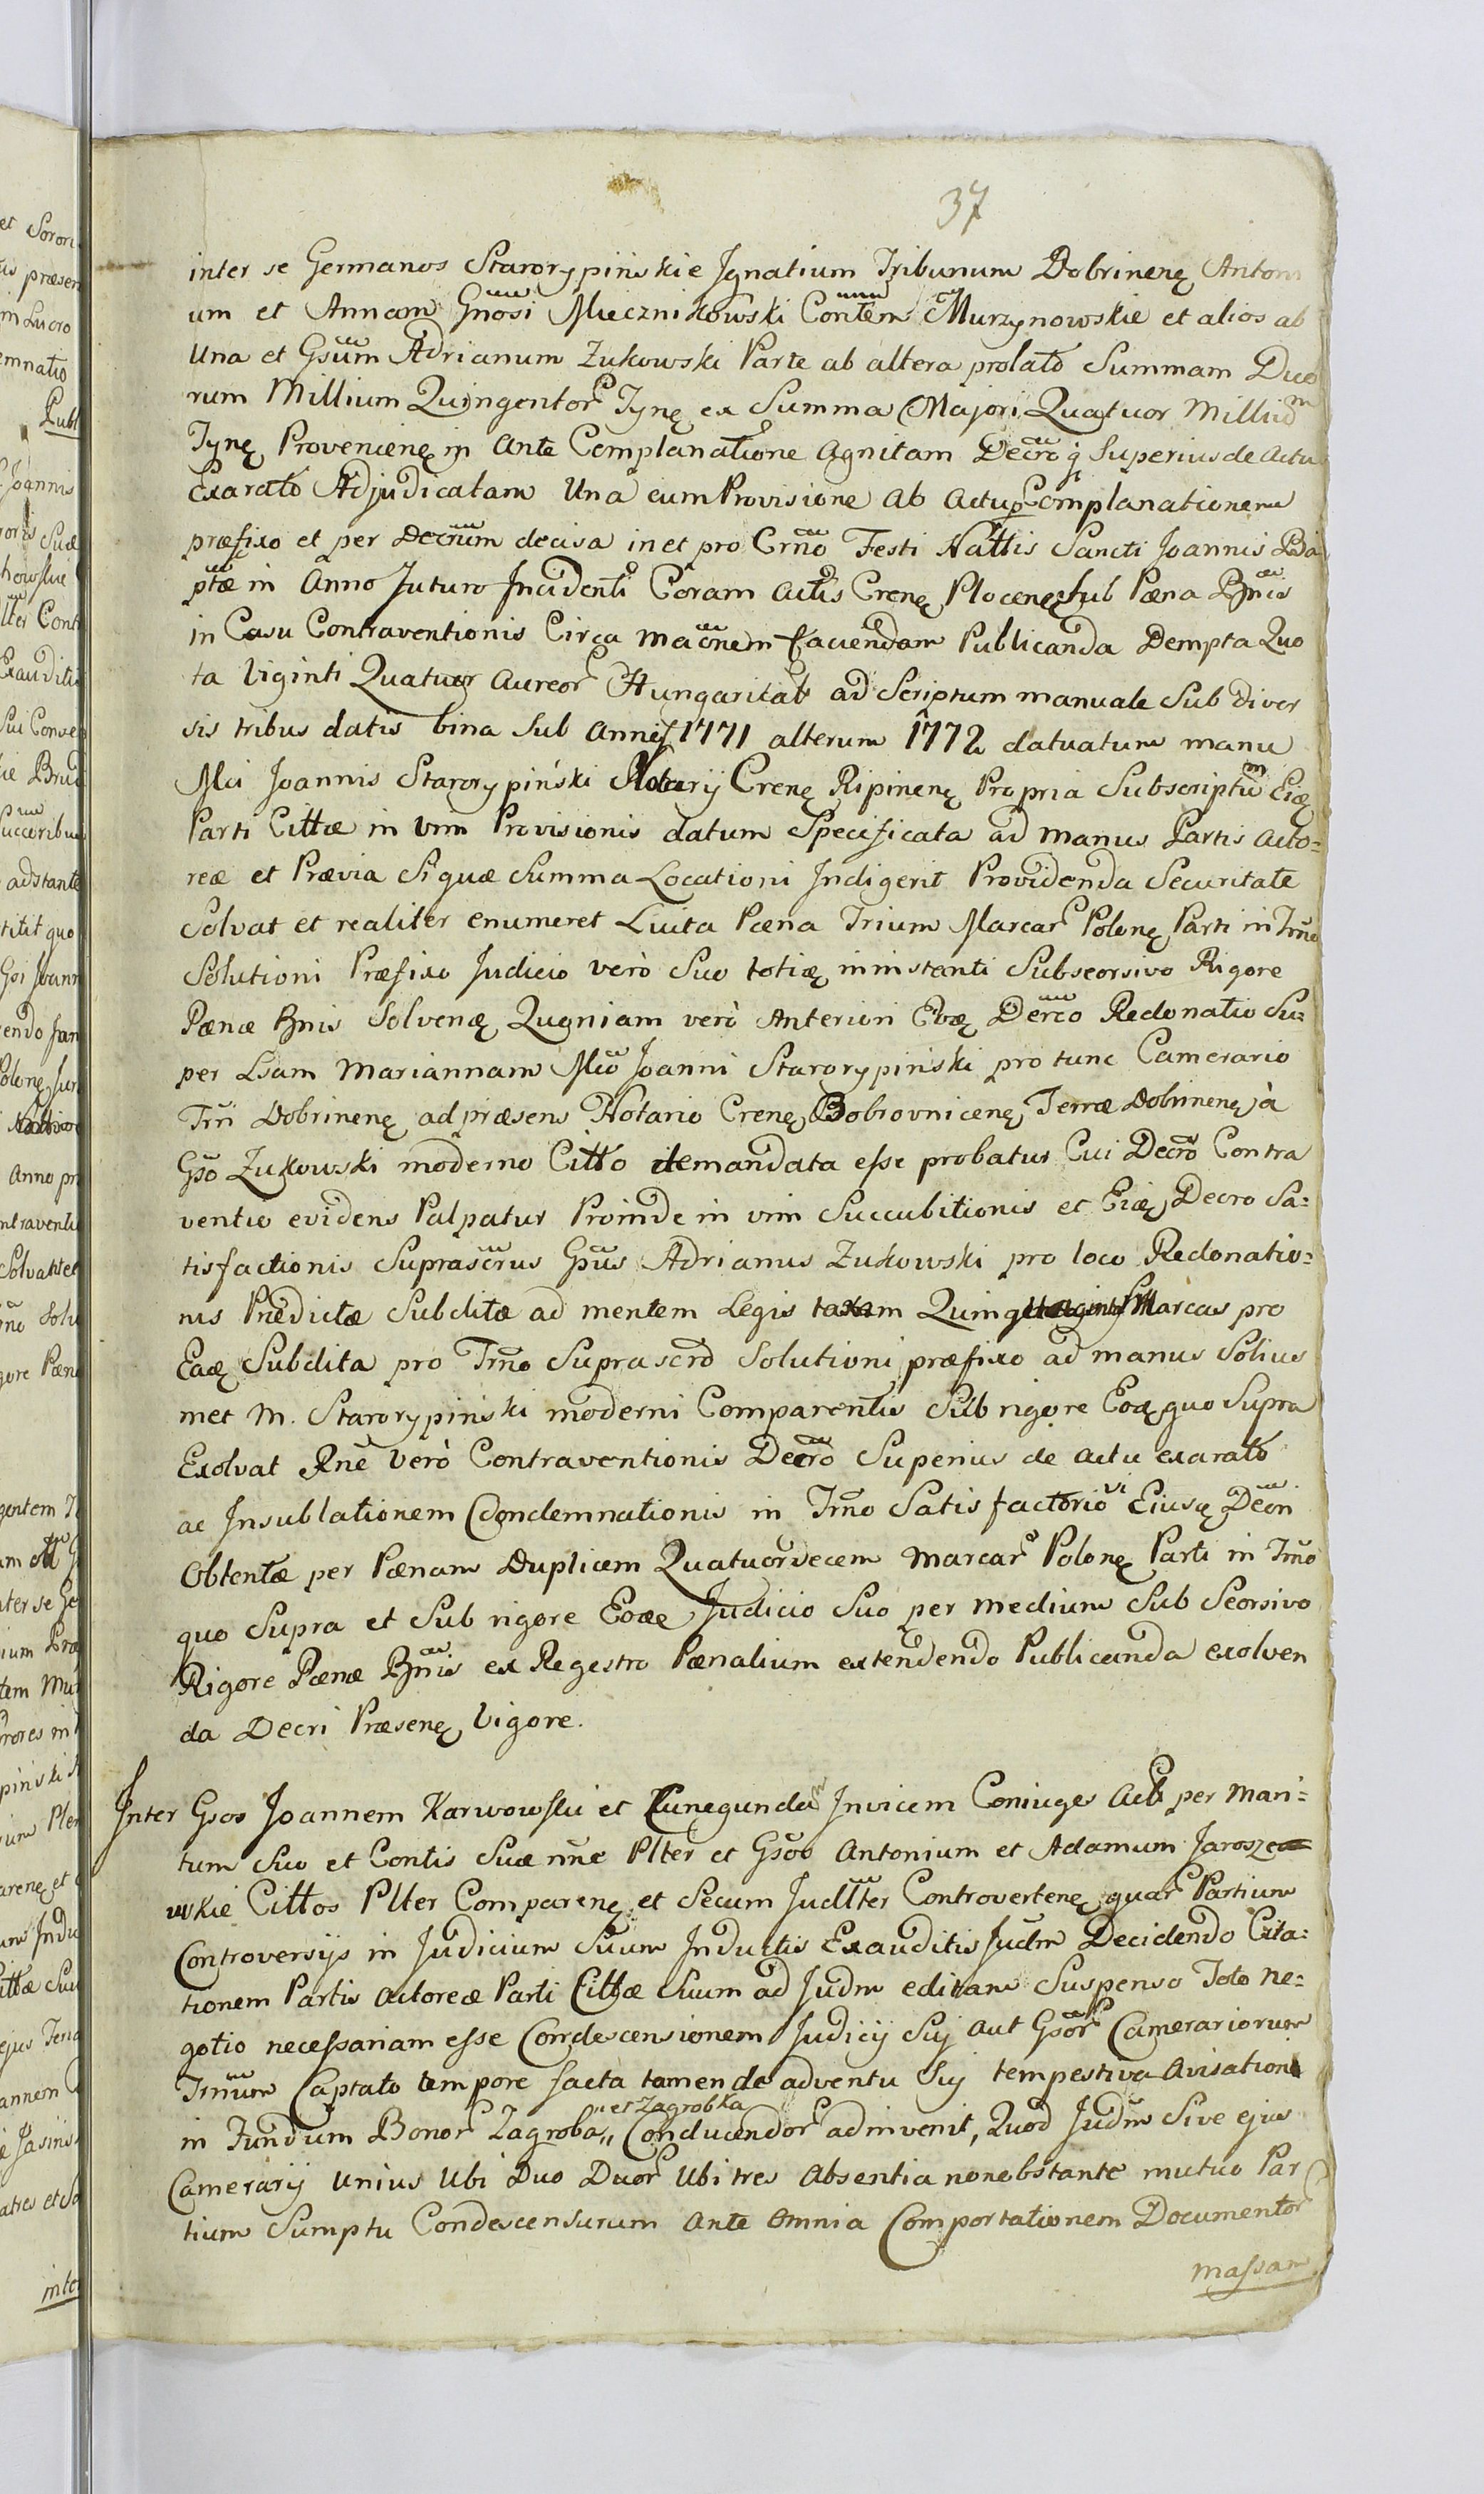 37
inter se Germanos Starorypinskie Ignatium Tribunum Dobrinenę Antoni
um et Annam Gnosi Miecznikowski Contem Murzynowskie et alios ab
Una et Gsum Adrianum Zukowski Parte ab altera prolato Summam Duo
rum Millium Quingentor Tynę ex Summa Majori Quatuor Milliu͠m
Tynę Provenienę in ante Complanatione agnitam Decro q Superius de actu
Exarato Adjudicatam Una cum Provisione ab actu Complanationem
præfixo et per Decrum decisa in et pro Crno Festi Nattis Sancti Joannis Ba
ptæ in Anno futuro Incidenti Coram actis Crenę Plocenę Sub Pæna Bnis
in Casu Contraventionis Circa maonem faciendam Publicanda Dempta Quo
ta Viginti Quatuor aureor Hungarical ad Scriptum manuale Sub diver
sis tribus datis bina Sub Annis 1771 alterum 1772 datuatum manu
Mci Joannis Starorypiński Notarij Crenę Ripinenę Propria Subscriptum Eię
Parti Cittæ in vim Provisionis datum Specificata ad manus Partis acto=
reæ et Prævia Siquæ Summa Locationi Indigerit Providenda Securitate
Solvat et realiter enumeret Luita Pæna Trium Marcar Polonę Parti in Trno
Solutioni Præfixo Judicio verò Suo totię in instanti Subseorsivo Rigore
Pænæ Bnis Solvenę Quoniam verò Anteriori Eoę Decro Redonatio Su=
per Lsam Mariannam Mco Joanni Starorypinski pro tunc Camerario
Trri Dobrinenę ad præsens Notario Crenę Bobrovnicenę Terræ Dobrinenę à
Gso Zukowski moderno Citto demandata esse probatur Cui Decro Contra
ventio evidens Palpatur Proinde in vim Succubitionis et Eię Decro Sa=
tisfactionis Suprascrus Gsus Adrianus Zukowski pro loco Redonatio=
nis Prædictæ Subditæ ad mentem Legis taxam Marcas pro
Eaę Subdita pro Trno Suprascro Solutioni præfixo ad manus Solius
met M. Starorypinski moderni Comparentis Sub rigore Eoę quo Supra
Exolvat Rne verò Contraventionis Decro Superius de actu exarato
ac Insublationem Condemnationis in Trno Satisfactorio vi Eiusę Decri
Obtentæ per Pænam Duplicem Quatuordecem Marcar Polonę Parti in Trno
quo Supra et Sub rigore Eoę Judicio Suo per medium Sub Seorsivo
Rigore Pænæ Bnis ex Regestro Pænalium extendendo Publicanda exolven
da Decri Præsenę Vigore.
Inter Gsos Joannem Karwowski et Cunegundam Invicem Coniuges Act per Mari=
tum Suo et Contis Suæ nne Plter et Gsos Antonium et Adamum Jarosze
wskie Cittos Plter Comparenę et Secum Judllter Controvertenę quar Partium
Controversijs in Judicium Suum Inductis Exauditis Judm Decidendo Cita=
tionem Partis actoreæ Parti Cittæ Suum ad Judm editam Suspenso Toto ne=
gotio necessariam esse Condescensionem Judicij Sij aut Gsor Camerariorum
Trnum Captato tempore facta tamen de adventu Sij tempestiva Avisatione
in Fundum Bonor Zagroba „et Zagrobka„ Conducendor adinvenit, Quod Judm Sive ejus
Camerarij Unius Ubi Duo Duor Ubi tres absentia nonobstante mutuo Par
tium Sumptu Condescensurum ante omnia Comportationem Documentor
massam